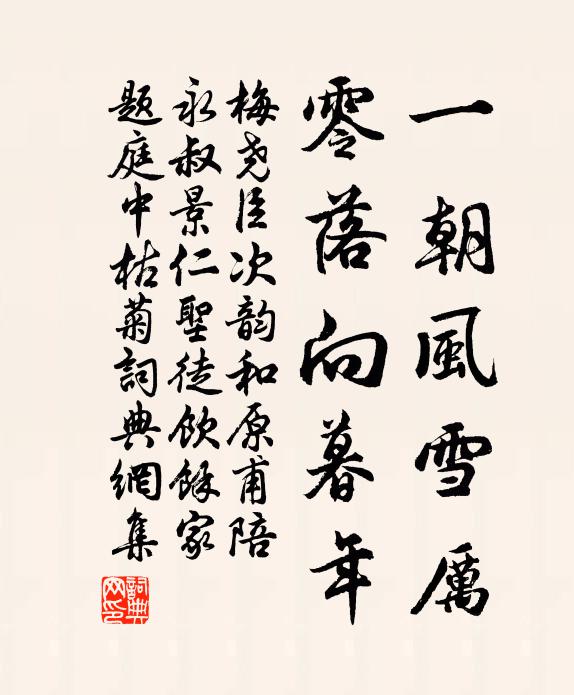 一朝風雪厲
零落向暮年
梅堯臣次韵和原甫陪
永叔景仁聖徒飲餘家
題庭中枯菊詞典網集
詞典網印